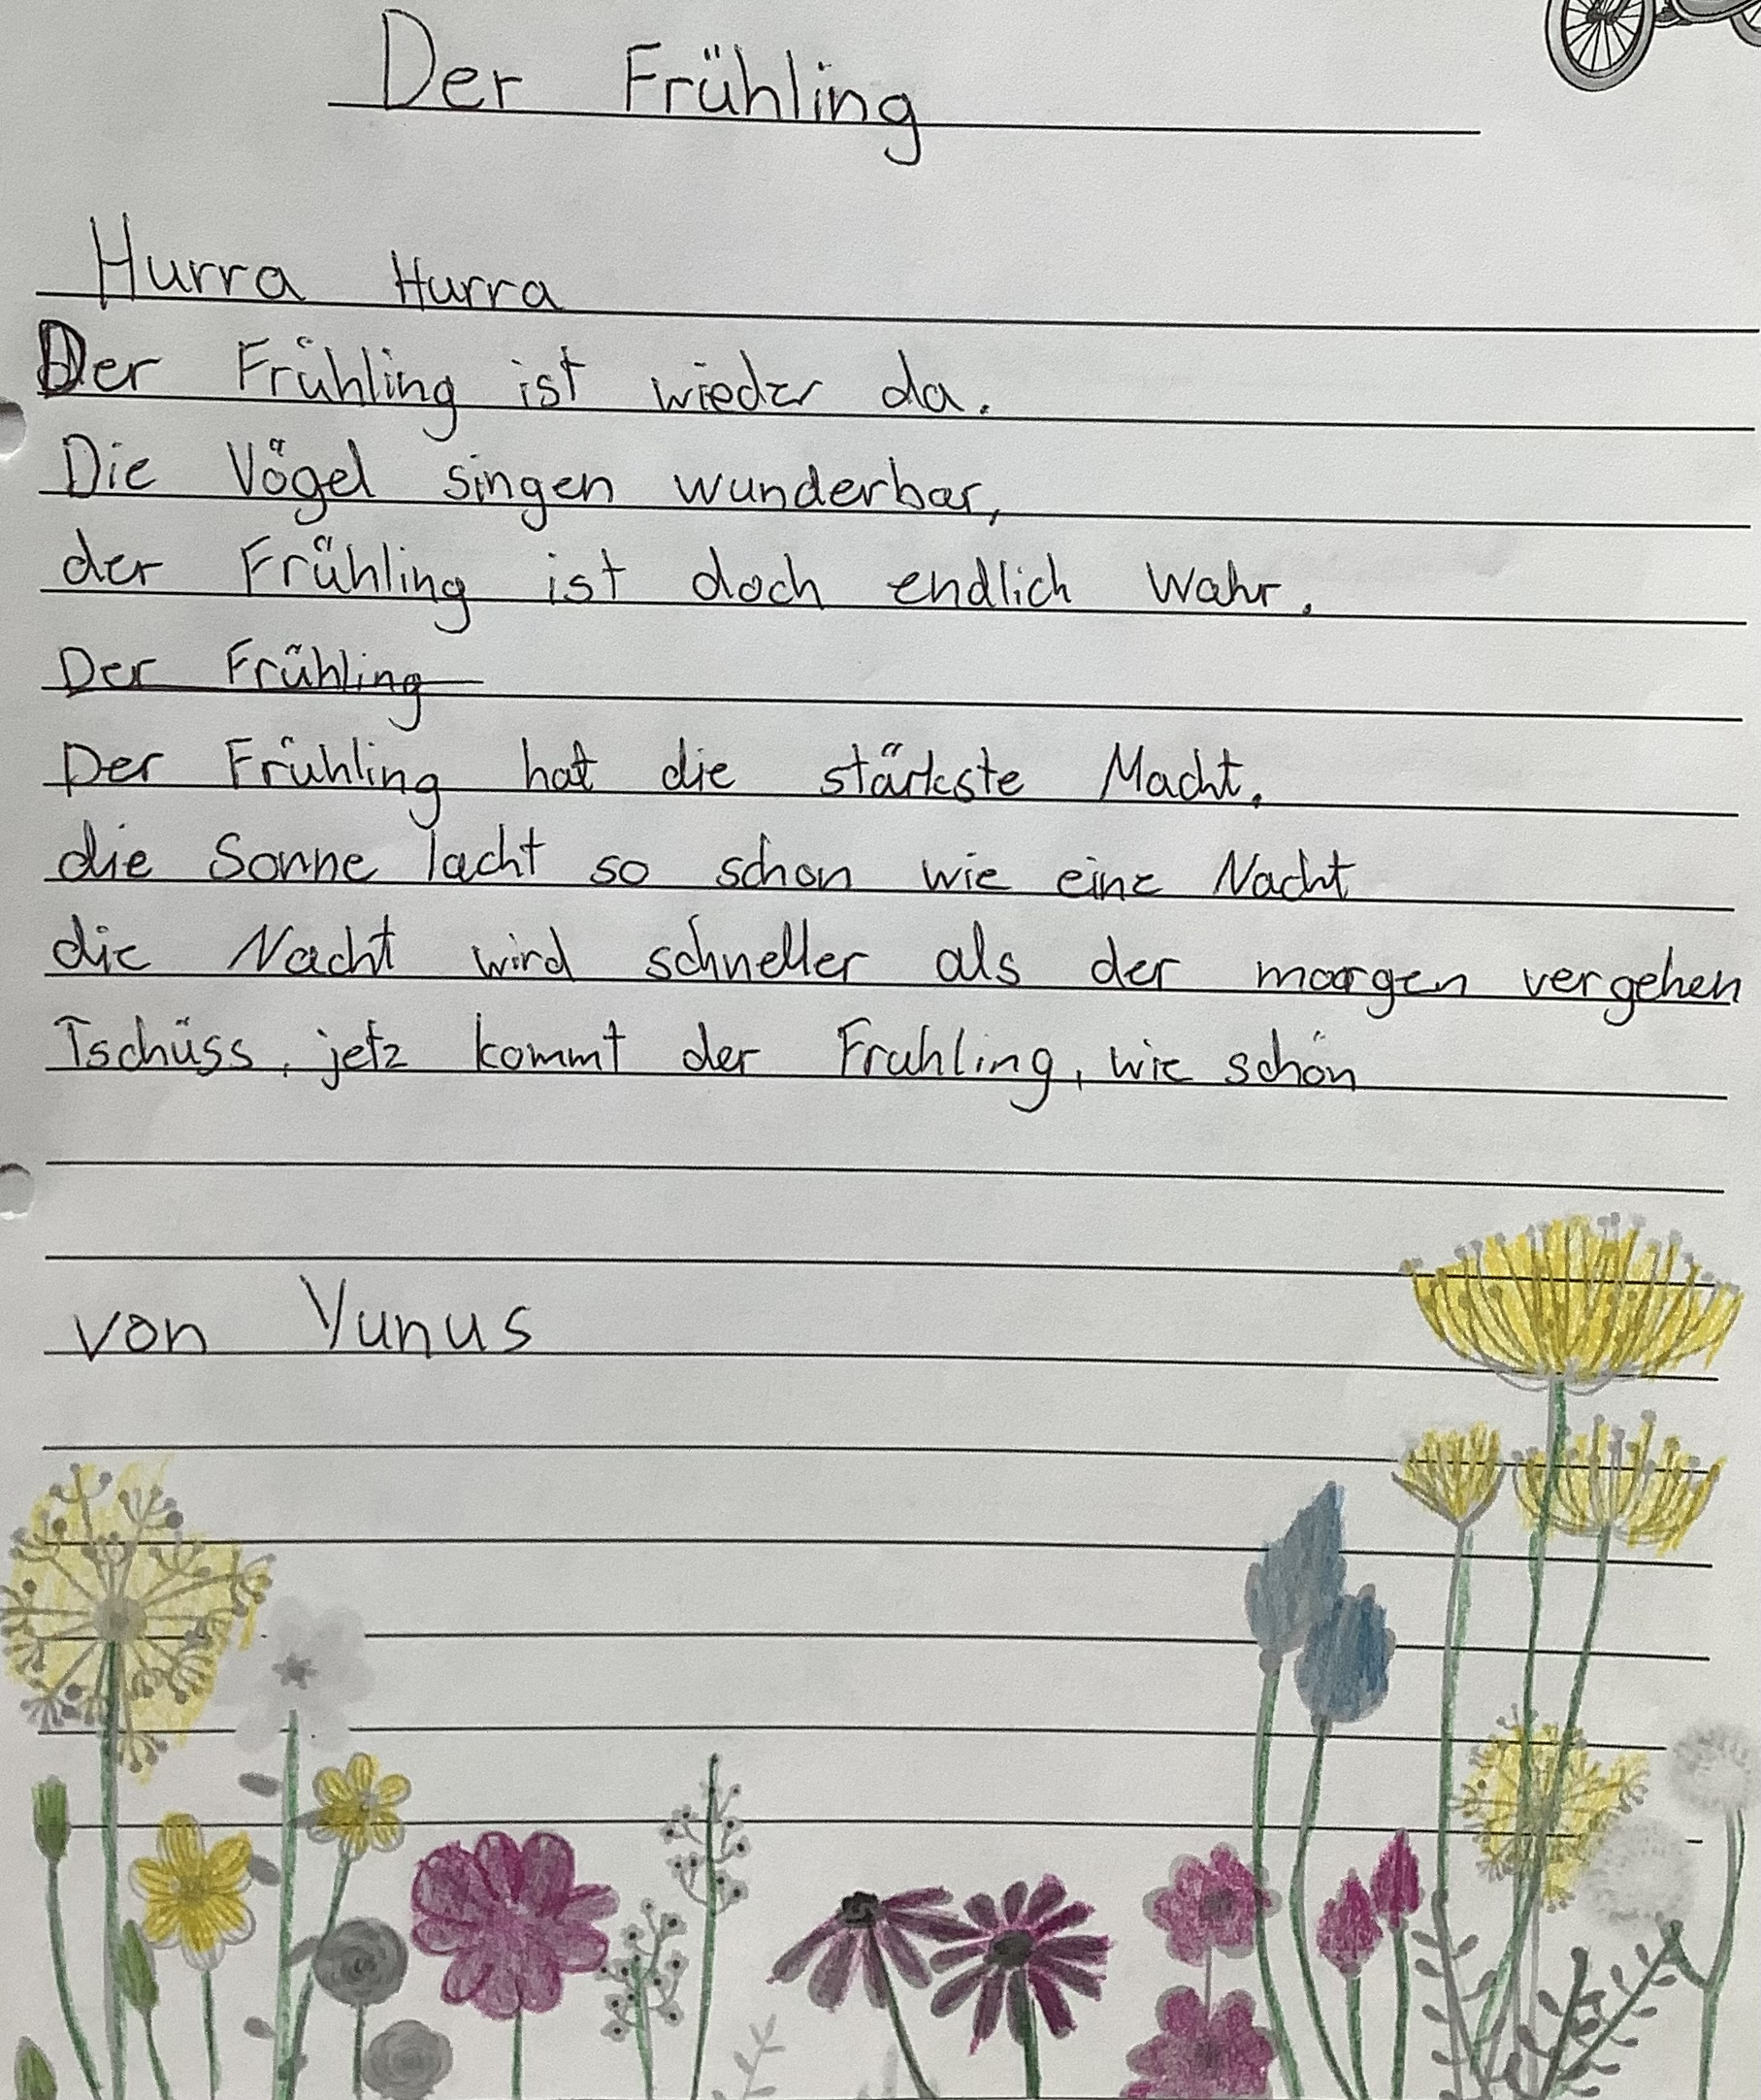 Der Frühling
Hurra Hurra
Der Frühling ist wieder da.
Die Vögel singen wunderbar,
der Frühling ist doch endlich wahr.
Der Frühling
Der Frühling hat die stärkste Macht.
die Sonne lacht so schon wie eine Nacht
die Nacht wird schneller als der morgen vergehen
Tschüss, jetz kommt der Fruhling, wie schön
von Yunus